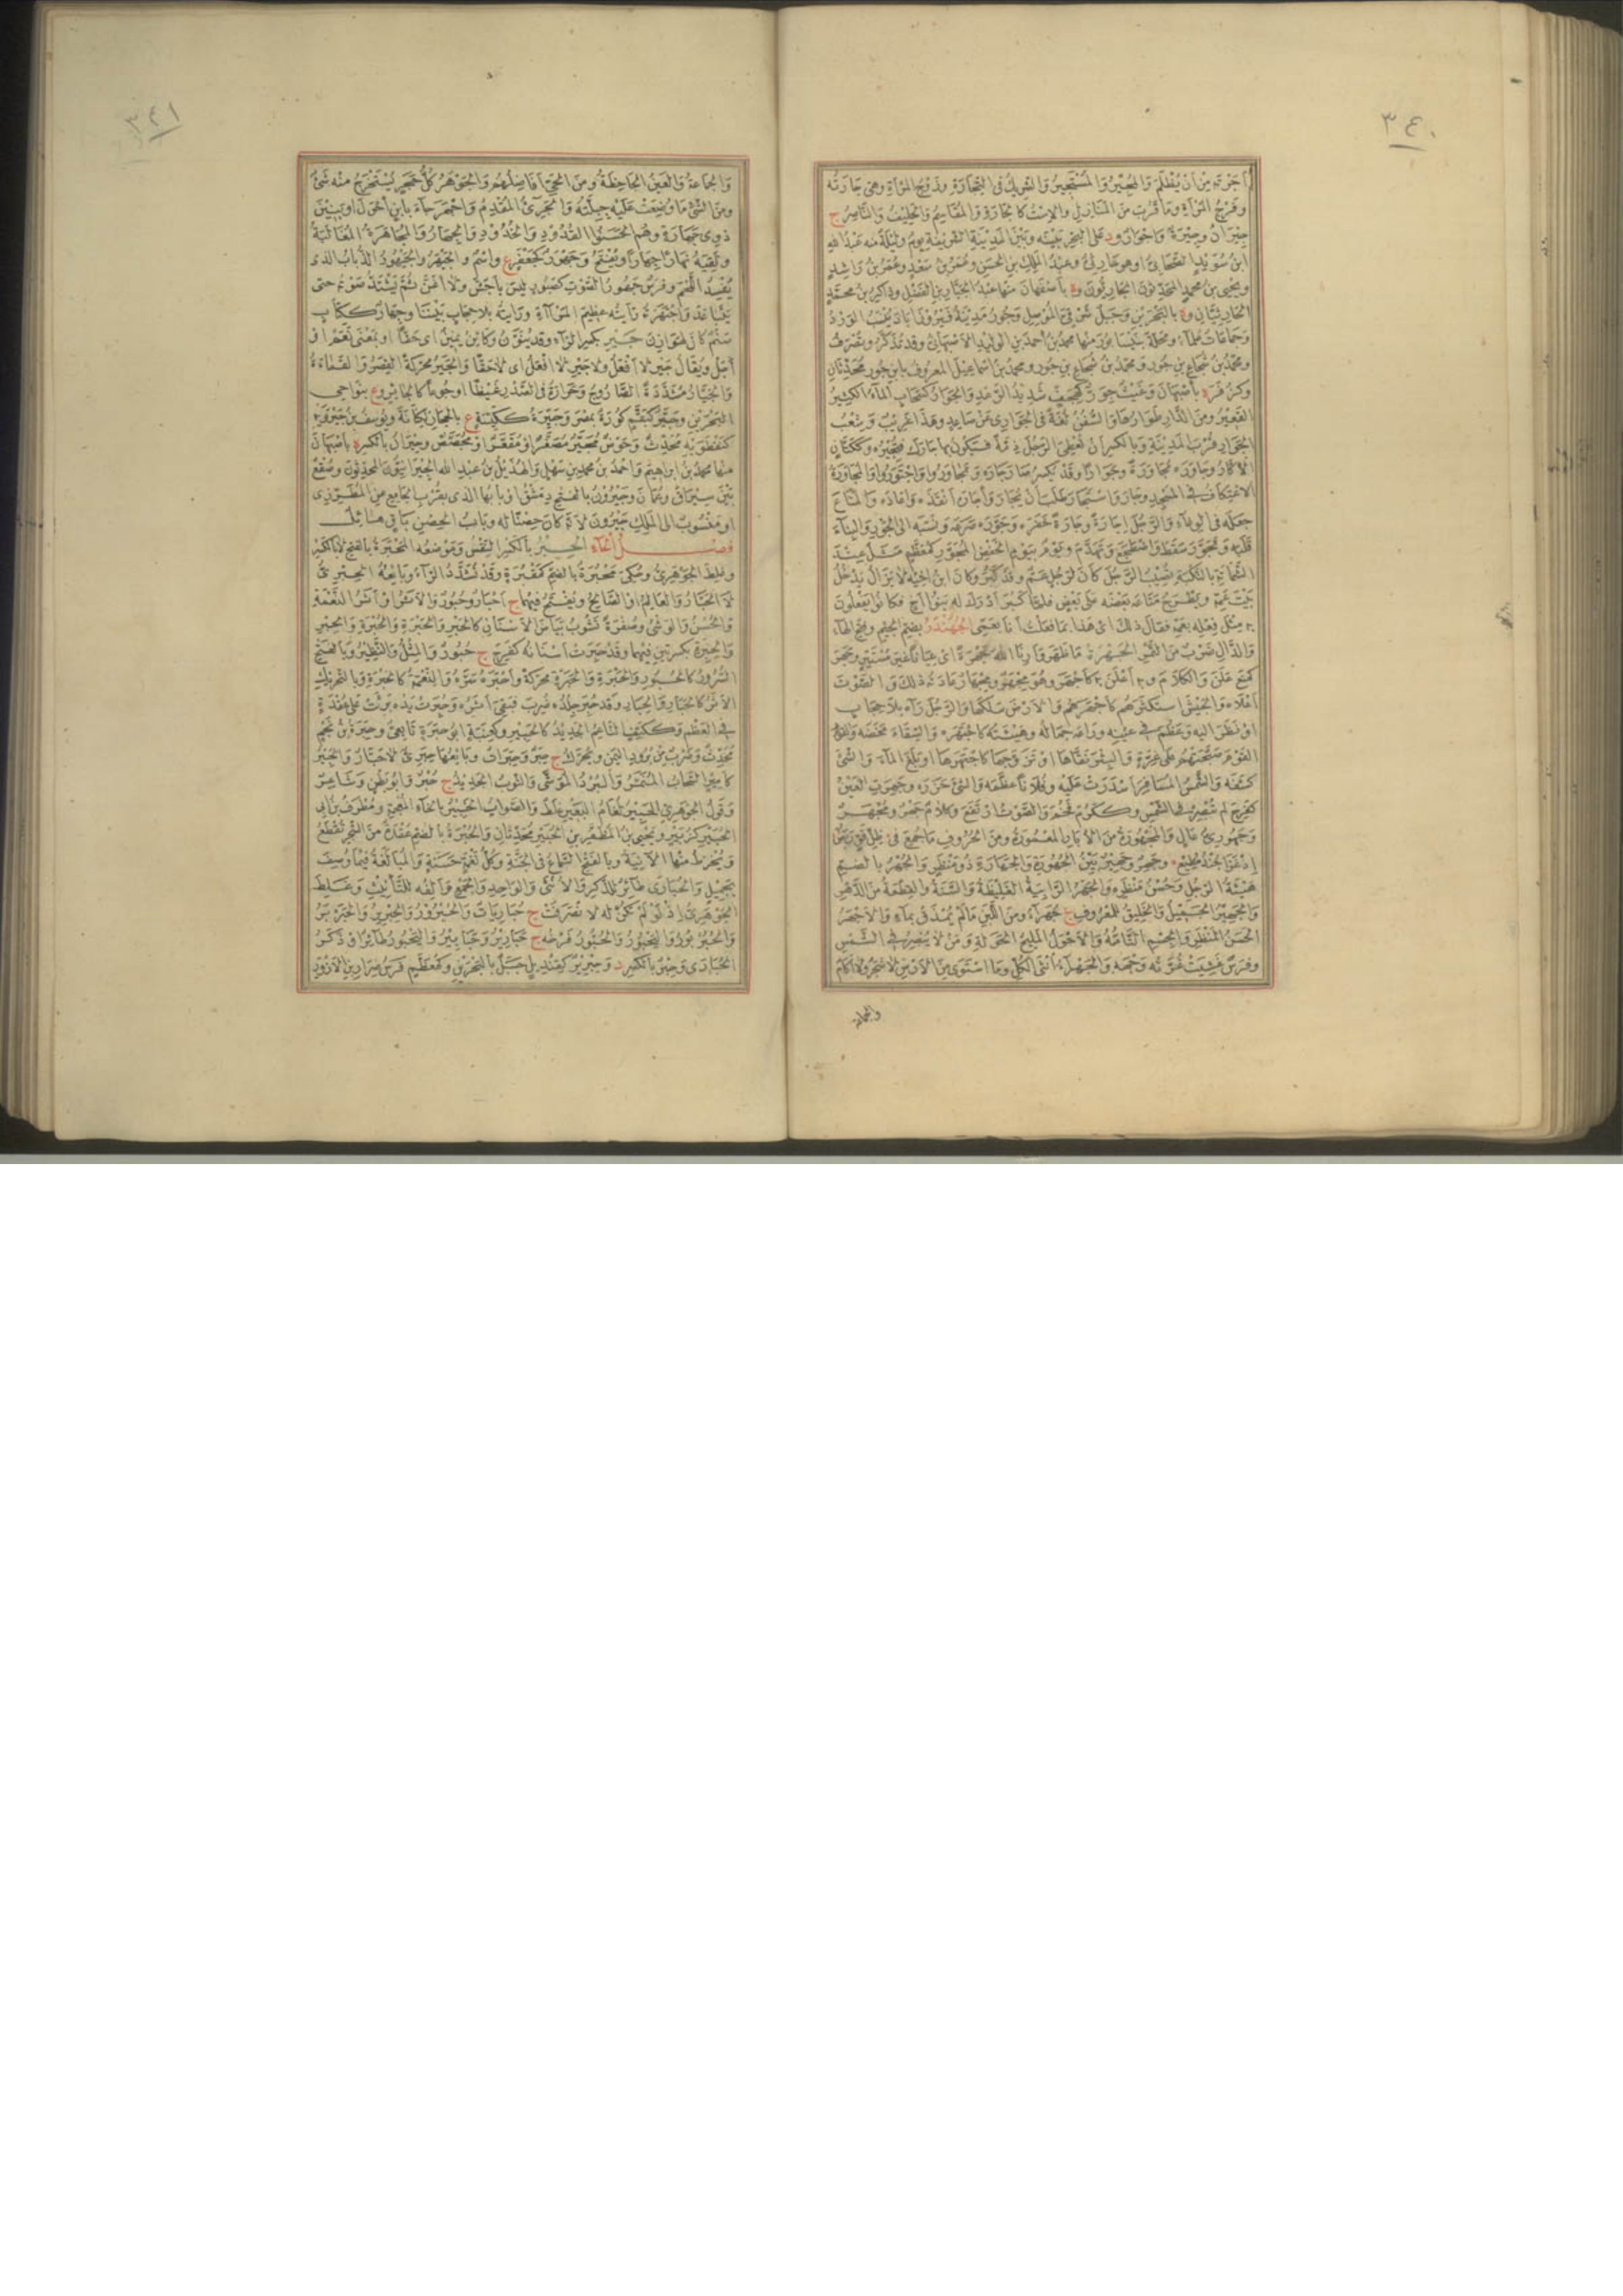 ٣٤٠
أَجَرْتَه مِنْ أَنْ يُظْلَمَ وَالمُجِيْرُ وَالمُسْتَجِيْرُ وَالشَّرِيْكُ فى التِّجَارَةِ وزَوْجُ المَرْأةِ وهى جَارَتُه
وفَرْجُ المَرْأةِ ومَا قَرُبَ مِنَ المَنَازِلِ والاِسْتُ كالجَارَةِ وَالمُقَاسِمُ وَالحَلِيْفُ وَالنَّاصِرُ ج
جِيْرَانٌ وجِيْرَةٌ وَأجْوَارٌ ود على البَحْرِ بَيْنَه وبَيْنَ المَدِيْنَةِ الشَّرِيْفَةِ يومٌ ولَيْلَةٌ منه عَبْدُ اللهِ
ابنُ سُوَيْدٍ الصَّحَابىُّ اوهو حَارِثىٌّ وعَبْدُ المَلِكِ بنُ الحَسَنِ وعُمَرُ بنُ سَعْدٍ وعُمَرُ بنُ رَاشِدٍ
ويحيى بنُ محمدٍ المُحَدِّثُونَ الجَارِيُّونَ وة بأصْفَهَانَ منها عَبْدُ الجَبَّارِ بنُ الفَضْلِ وذاكِرُ بنُ محمَّدٍ
الجَارِيَّانِ وة بالبَحْرَيْنِ وجَبَلٌ شَرْقِىَّ المَوْصِلِ وجُورُ مَدِيْنَةُ فَيْرُوزَابَادَ يُنْسَبُ الوَرْدُ
وجَمَاعَاتُ عُلَمَآءَ ومَحَلَّةٌ بِنَيْسَابُورَ منها محمدُ بنُ أَحمَدَ بنِ الوَلِيْدِ الاَصْبَهَانِىُّ وقد تُذَكَّرُ وتُصْرَفُ
ومحمَّدُ بنُ شُجَاعِ بنِ جُورَ ومحمَّدُ بنُ إسْمَاعِيْلَ المعروفُ بابنِ جُورَ مُحَدِّثَانِ
وكزُفَرَ ة بأصْبَهَانَ وغَيْثٌ جِوَرٌّ كَهِجَفٍّ شَدِيْدُ الرَّعْدِ وَالجَوَارُ كَسَحَابٍ المَآءُ الكَثِيْرُ
القَعِيْرُ ومن الدَّارِ طَوَارُهَا وَالسُّفُنُ لُغَةٌ فى الجَوَارِى عَنْ صَاعِدٍ وهَذَا غَرِيْبٌ وشِعْبُ
الجِوَارِ قُرْبَ المَدِيْنَةِ وبالكسرِ أَنْ تُعْطِىَ الرَّجُلَ ذِمَّةً فيَكُونَ بها جَارَكَ فَتُجِيْرَه وكَكَتَّانٍ
الاَكَّارُ وجَاوَرَه مُجَاوَرَةً وجِوَارًا وقَدْ يُكْسَرُ صَارَ جَارَه وتَجَاوَرُوا وَاجْتَوَرُوا وَالمُجَاوَرَةُ
الاِعْتِكَافُ فى المَسْجِدِ وجَارَ وَاسْتَجَارَ طَلَبَ أَنْ يُجَارَ وأَجَارَه أَنْقَذَه وَأعَاذَه وَالمَتَاعَ
جَعَلَه فى الوِعآءِ وَالرَّجُلَ إجَارَةً وجَارَةً خَفَرَه وجَوَّرَه صَرَعَه ونَسَبَه الى الجَوْرِ وَالبِنَآءَ
قَلَبَه وتَجَوَّرَ سَقَطَ وَاضْطَجَعَ وتَهَدَّمَ ويَوْمٌ بيَوْمِ الحَفَضِ المُجَوَّرِ كمُعَظَّمٍ مَثَلٌ عِنْدَ
الشَّمَاتَةِ بالنَّكْبَةِ تُصِيْبُ الرَّجُلَ كَانَ لِرَجُلٍ عَمٌّ وقد كَبِرَ وكَانَ ابنُ اخِيْهِ لاَ يَزَالُ يَدْخُلُ
بَيْتَ عَمِّه ويَطْرَحُ مَتَاعَه بَعْضَه على بَعْضٍ فلمَّا كَبِرَ أَدْرَكَ له بَنُو أَخٍ فكَانُوا يَفْعَلُونَ
به مِثْلَ فِعْلِه بعَمِّه فقال ذلك اى هَذَا بمَا فَعَلْتُ أَنَا بعَمِّى الجُهَنْدَرُ بضمِّ الجِيْمِ وفتحِ الهآءِ
وَالدَّالِ ضَرْبٌ مِنَ التَّمْرِ الجَهْرَةُ مَا ظَهَرَ وأَرِنَا اللهَ جَهْرَةً اى عِيَانًا غيرَ مُسْتَتِرٍ وجَهَرَ
كمَنَعَ عَلَنَ وَالكَلاَمَ وبه أعْلَنَ به كأَجْهَرَ وهُوَ مِجْهَرٌ ومِجْهَارٌ عَادَتُه ذلكَ وَالصَّوْتَ
أعْلاَه وَالجَيْشَ اسْتَكْثَرَهُم كَاجْتَهَرَهُم وَالاَرْضَ سَلَكَهَا وَالرَّجُلَ رَآه بلاَ حِجَابٍ
اوْ نَظَرَ اليه وعَظُمَ فى عَيْنِه ورَاعَه جَمَالُه وهَيْئَتُه كَاجْتَهَرَه وَالسِّقَاءَ مَخَضَه
القَوْمَ صَبَّحَتْهُم على غِرَّةٍ وَالبِئْرَ نَقَّاهَا اوْ نَزَحَهَا كَاجْتَهَرَهَا او بَلَغَ المآءَ وَالشَّىْءَ
كَشَفَه وَالشَّمْسُ المُسَافِرَ أسْدَرَتْ عَيْنَه وفُلاَنًا عَظَّمَه وَالشَّىْءَ حَزَرَه وجَهِرَتِ العَيْنُ
كفَرِحَ لم تُبْصِرْ فى الشَّمْسِ وككَرُمَ فَخُمَ وَالصَّوْتُ ارْتَفَعَ وكلامٌ جَهْرٌ ومُجْهَرٌ
وجَهْوَرِىٌّ عَالٍ وَالمَجْهُورَةُ مِنَ الآبَارِ المَعْمُورَةُ ومنَ الحُرُوفِ مَا جُمِعَ فى ظِلُّ قَوٍّ رَبَضٌ
إذْ غَزَا جُنْدٌ مُطِيْعٌ وجَهِرٌ وجَهِيْرٌ بَيِّنُ الجُهُورَةِ وَالجَهَارَةِ ذُو مَنْظَرٍ وَالجُهْرُ بالضمِّ
هَيْئَةُ الرَّجُلِ وحُسْنُ مَنْظَرِه وَالجَهْرُ الرَّابِيَةُ الغَلِيْظَةُ وَالسَّنَةُ وَالقِطْعَةُ مِنَ الدَّهْرِ
وَالجَهِيْرُ الجَمِيْلُ وَالخَلِيْقُ للمَعْرُوفِ ج جُهَرَآءُ ومنَ اللَّبَنِ مَا لَمْ يُمْذَقْ بمَآءٍ وَالاَجْهَرُ
الحَسَنُ المَنْظَرِ وَالجِسْمِ التَّامُّهُ وَالاَحْوَلُ المَلِيْحُ الحَوَلَةِ ومَنْ لاَ يُبْصِرُ فى الشَّمْسِ
وفَرَسٌ غَشِيَتْ غُرَّتُه وَجْهَه وَالجَهْرَآءُ أُنْثَى الكُلِّ ومَا اسْتَوَى مِنَ الاَرْضِ لاَ شَجَرَ ولاَ آكَامَ
والجماعة
٣٤١
وَالجَمَاعَةُ وَالعَيْنُ الجَاحِظَةُ ومنَ الحَىِّ أَفَاضِلُهُم وَالجَوْهَرُ كُلُّ حَجَرٍ يُسْتَخْرَجُ مِنْه شَىْءٌ
ومنَ الشَّىْءِ مَا وُضِعَتْ عَلَيْهِ جِبِلَّتُه وَالجَرِىءُ المُقْدِمُ وَاجْهَرَ جَاءَ بابنٍ أحْوَلَ او بِبَنِيْنَ
ذَوِى جَهَارَةٍ وهُمُ الحَسَنُوا القُدُوْدِ وَالخُدُوْدِ وَالجِهَارُ وَالمُجَاهَرَةُ المُغَالَبَةُ
ولَقِيَهُ نَهَارًا جِهَارًا ويُفْتَحُ وجَهْوَرٌ كجَعْفَرٍ ع وَاسْمٌ وَالجَيْهَرُ وَالجَيْهُورُ الذُّبَابُ الذى
يُفْسِدُ اللَّحْمَ وفَرَسٌ جَهْوَرُ الصَّوْتِ كصَبُورٍ لَيْسَ بأَجَشَّ ولاَ أغَنَّ ثُمَّ يَشْتَدُّ صَوْتُه حتى
يَتَبَاعَدَ وَاجْتَهَرَه رَأيْتُه عَظِيْمَ المَرْآةِ ورَأيْتُه بلاَ حِجَابٍ بَيْنَنَا وجِهَارٌ ككِتَابٍ
صَنَمٌ كَانَ لهَوَازِنَ جَيْرِ بكسرِ الرَّآءِ وقد يُنَوَّنُ وكَأيْنَ يَمِيْنٌ اى حَقًّا او بمَعْنَى نَعَمْ اوْ
أَجَلْ ويُقَالُ جَيْرِ لاَ أَفْعَلُ ولاَ جَيْرِ لاَ افْعَلُ اى لاَ حَقًّا وَالجَيَرُ محرَّكَةً القِصَرُ وَالقَمَاءَةُ
وَالجَيَّارُ مُشَدَّدَةً الصَّارُوجُ وحَرَارَةٌ فى الصَّدْرِ غَيْظًا اوجُوعًا كَالجَائِرِ وع بنَوَاحِى
البَحْرَيْنِ وجَيَّرُ كبَقَّمٍ كُوْرَةٌ بمِصْرَ وجَيْرَةُ ع بالحِجَازِ لكِنَانَةَ ويُوسُفُ بنُ جَيْرَوَيْهِ
كنَفْطَوَيْهِ مُحَدِّثٌ وحَوْضٌ مُجَيَّرٌ مُصَغَّرٌ اوْ مُقَعَّرٌ اوْ مُجَصَّصٌ وجِيْرَانُ بالكسرِ ة بأصْبَهَانَ
منها محمدُ بنُ ابراهيمَ وَاحْمَدُ بنُ محمدِ بنِ سَهْلٍ وَالهُذَيْلُ بنُ عَبْدِ الله الجِيْرَانِيُّونَ المُحَدِّثُونَ وصُقْعٌ
بَيْنَ سِيْرَافَ وعُمَانَ وجَيْرُوْنُ بالفتحِ دِمَشْقُ او بَابُهَا الذى بقُرْبِ الجَامِعِ عن المُطَرِّزِىِّ
او مَنْسُوبٌ الى المَلِكِ جَيْرُونَ لاَنَّه كَانَ حِصْنًا له وبَابُ الحِصْنِ بَاقٍ هَائِلٌ
فصـــلُ الحَآء الحِبْرُ بالكسْرِ النِّقْسُ ومَوْضِعُه المَحْبَرَةُ بالفتحِ لاَ بالكسْرِ
وغَلِطَ الجَوْهَرِىُّ وحُكِىَ مَحْبُرَةٌ بالضمِّ كمَقْبُرَةٍ وقَدْ تُشَدَّدُ الرَّآءُ وبَائِعُهُ الحِبْرِىُّ
لاَ الحَبَّارُ وَالعَالِمُ اوِ الصَّالِحُ ويُفْتَحُ فِيْهِمَا ج أَحْبَارٌ وحُبُورٌ وَالاَثَرُ اوْ أَثَرُ النَّعْمَةِ
وَالحُسْنُ وَالوَشْىُ وصُفْرَةٌ تَشُوبُ بَيَاضَ الاَسْنَانِ كَالحَبْرِ وَالحَبْرَةِ وَالحُبْرَةِ وَالحِبِرِ
وَالحِبِرَةِ بكسرتينِ فيهما وقَدْ حَبِرَتْ اسْنَانُه كفَرِحَ ج حُبُورٌ وَالمِثْلُ وَالنَّظِيْرُ وبَالفتحِ
السُّرُورُ كَالحُبُورِ وَالحَبْرَةِ وَالحَبَرَةِ محرَّكَةً وأَحْبَرَهُ سَرَّهُ وَالنِّعْمَةُ كَالحَبْرَةِ وبَالتَّحْرِيْكِ
الاَثَرُ كَالحَبَارِ وَالحِبَارِ وقَدْ حُبِرَ جِلْدُه ضُرِبَ فبَقِىَ أَثَرُه وحَبِرَتْ يَدُه بَرِئَتْ على عُقْدَةٍ
فى العَظْمِ وككَتِفٍ النَّاعِمُ الجَدِيْدُ كَالحَبِيْرِ وكعِنَبَةٍ ابُو حِبَرَةَ تَابِعِىٌّ وحِبَرَةُ بنُ نَجْمٍ
مُحَدِّثٌ وضَرْبٌ مِنْ بُرُودِ اليَمَنِ ويُحَرَّكُ ج حِبَرٌ وحِبَرَاتٌ وبَائِعُهَا حِبَرِىٌّ لاَ حَبَّارٌ وَالحَبِيْرُ
كأَمِيْرٍ السَّحَابُ المُنَمَّرُ وَالبُرْدُ المُوَشَّى وَالثَّوْبُ الجَدِيْدُ ج حُبْرٌ وَابُو بَطْنٍ وشَاعِرٌ
وقَوْلُ الجَوْهَرِىِّ الحَبِيْرُ لُغَامُ البَعِيْرِ غَلَطٌ وَالصَّوَابُ الخَبِيْرُ بالخَآءِ المُعْجَمَةِ ومُطَرَّفُ بنُ أبى
الحُبَيْرِ كزُبَيْرٍ ويَحْيَى بنُ المُظَفَّرِ بنِ الحُبَيْرِ مُحَدِّثَانِ وَالحُبْرَةُ بالضمِّ عُقْدَةٌ مِنَ الشَّجَرِ تُقْطَعُ
ويُخْرَطُ مِنْهَا الآنِيَةُ وبالفَتْحِ السَّمَاعُ فى الجَنَّةِ وكُلُّ نَغْمَةٍ حَسَنَةٍ وَالمُبَالَغَةُ فيْمَا وُصِفَ
بجَمِيْلٍ وَالحُبَارَى طَائِرٌ للذَّكَرِ وَالاُنْثَى وَالوَاحِدِ وَالجَمْعِ وأَلِفُه للتَّأنِيْثِ وغَلِطَ
الجَوْهَرِىُّ إذْ لَوْ لَمْ تَكُنْ له لاَنْصَرَفَتْ ج حُبَارَيَاتٌ وَالحُبْرُوْرُ وَالحِبْرِيْرُ وَالحَبَرْبَرُ
وَالحُبُرْبُورُ وَاليَحْبُورُ وَالحُبُّورُ فَرْخُه ج حَبَارِيْرُ وحَبَابِيْرُ وَاليَحْبُورُ طَائِرٌ اوْ ذَكَرُ
الحُبَارَى وحِبْرٌ بالكسرِ د وحِبْرِيْرٌ كقِنْدِيْلٍ جَبَلٌ بالبَحْرَيْنِ وكمُعَظَّمٍ فَرَسُ ضِرَارِ بنِ الاَزْوَرِ